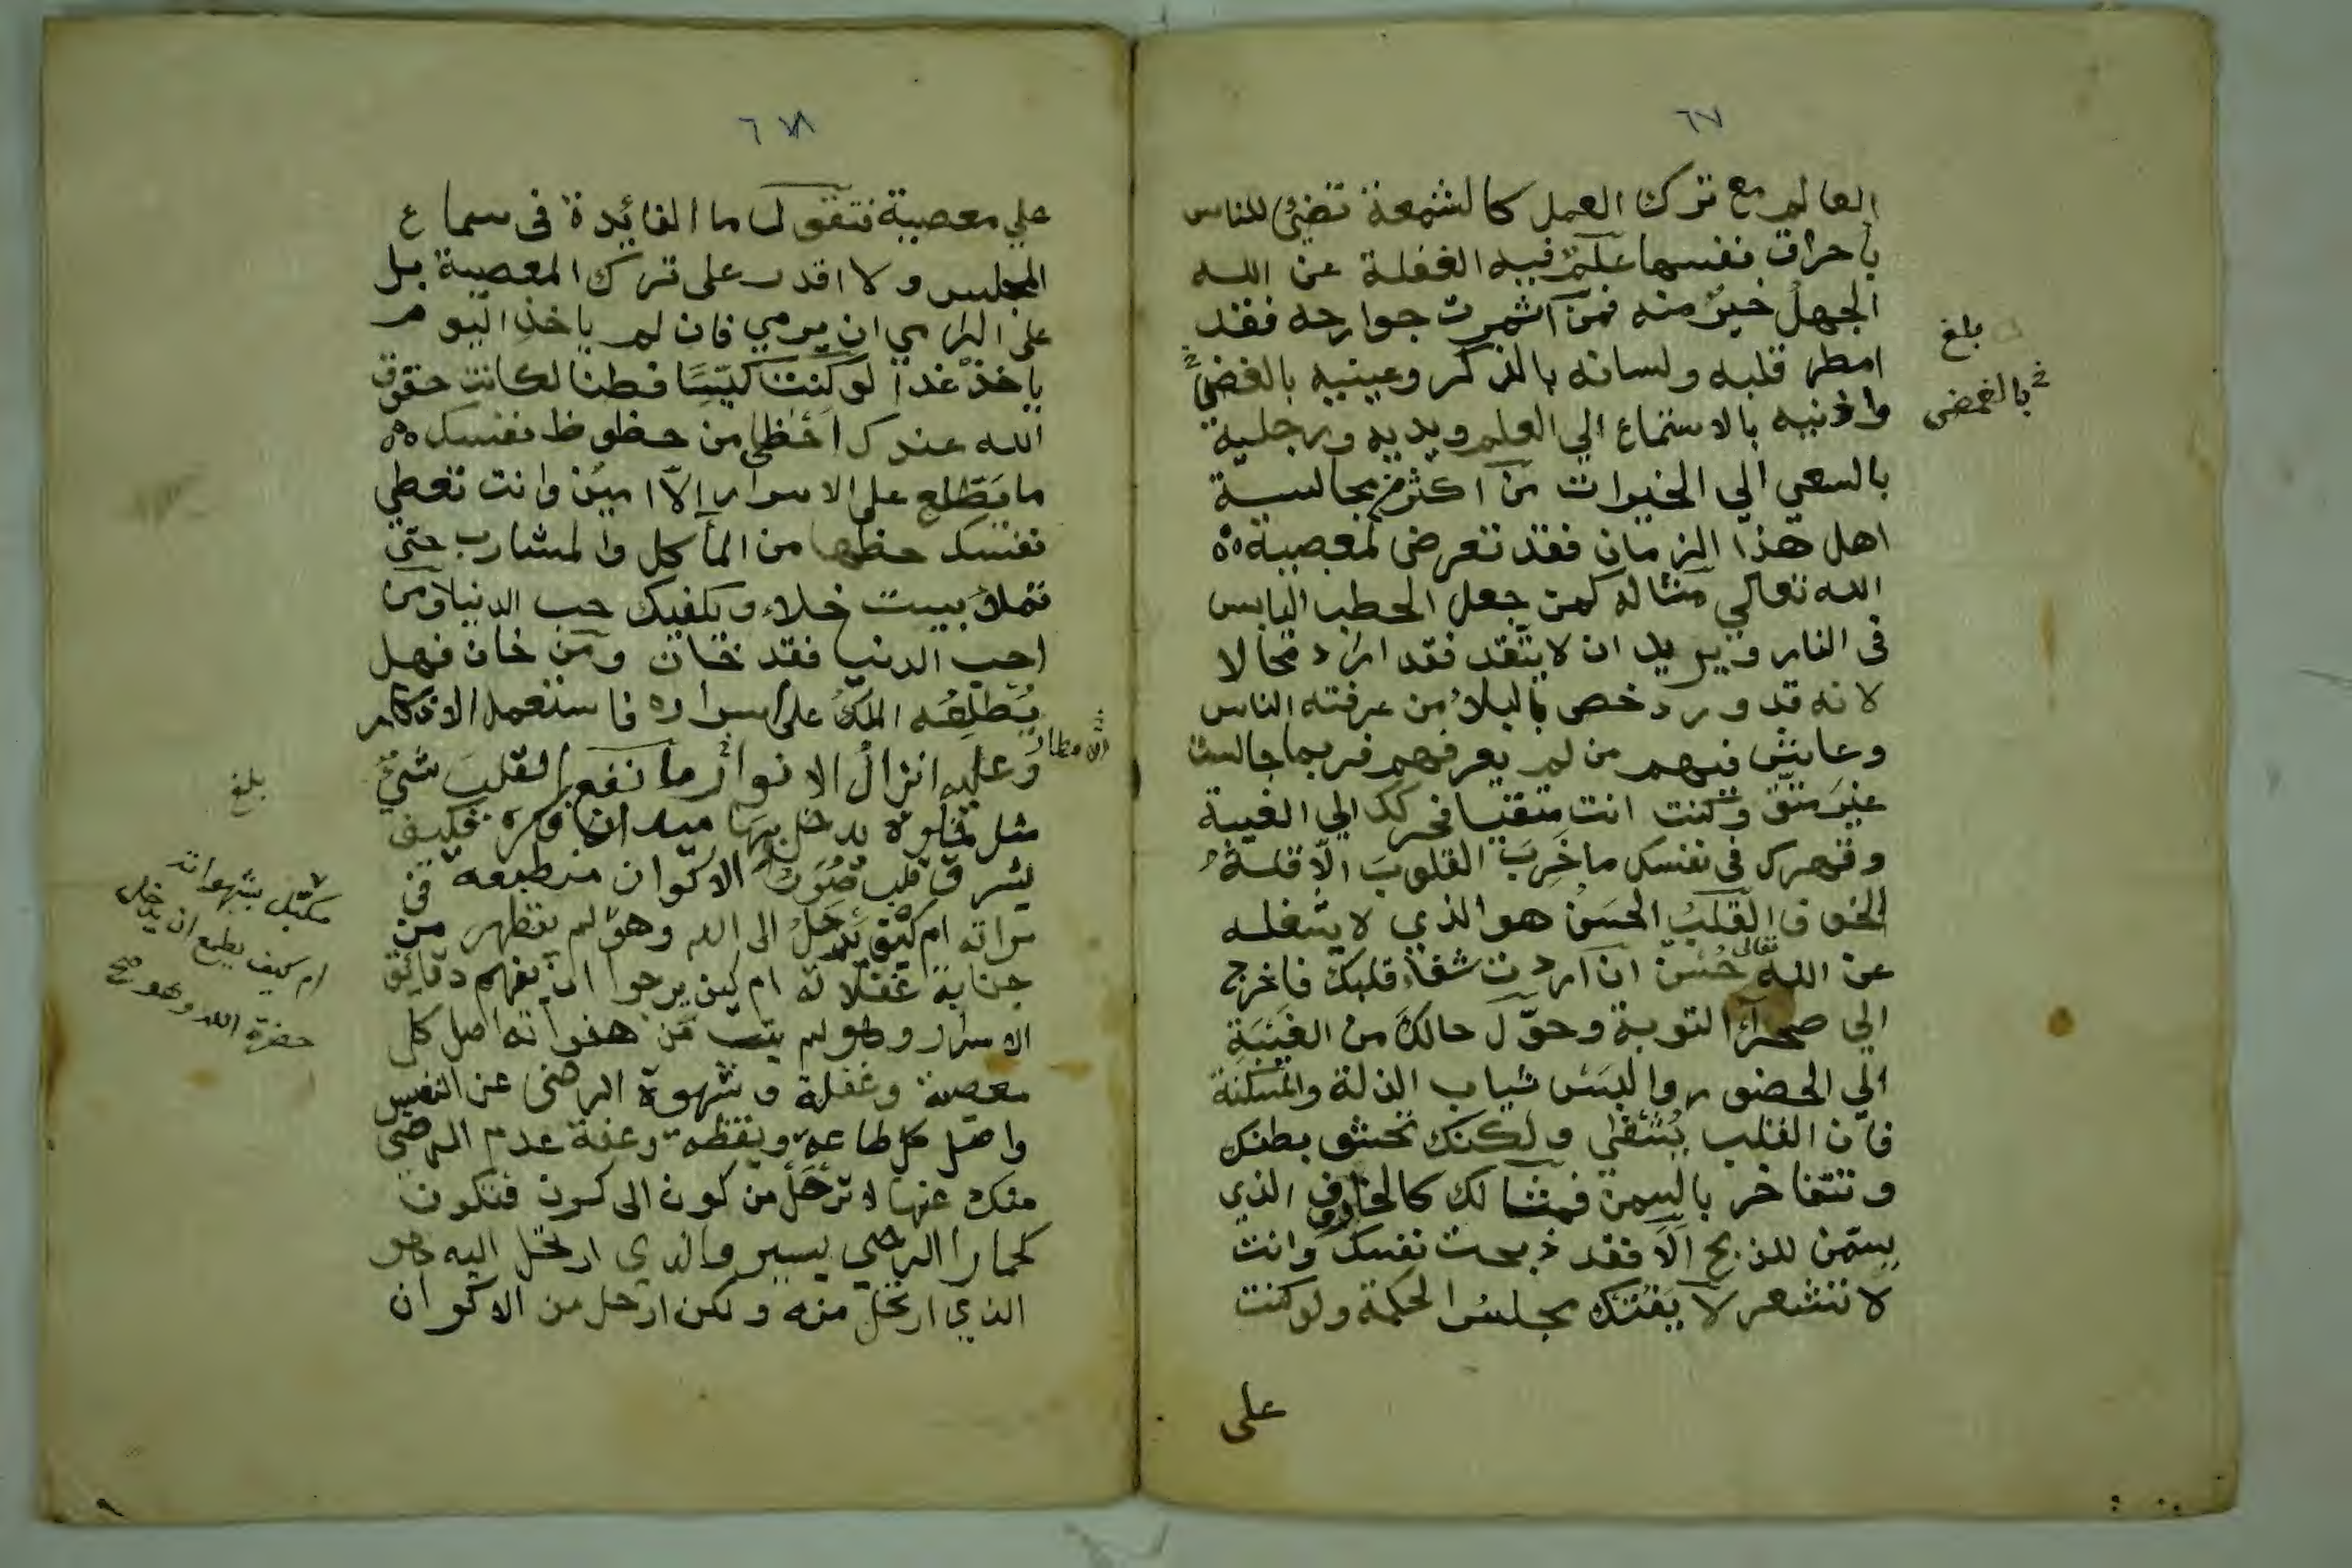 ٦٧
العالم مع ترك العمل كالشمعة تضئ للناس
بأحراق نفسها علمٌ فيه الغفلة عن الله
الجهل خيرٌ منه فمن اثمرت جوارحه فقد
امطر قلبه ولسانه بالذكر وعينيه بالغضِّ
واذنيه بالاستماع الي العلم ويديه ورجليه
بالسعي الي الخيرات من اكثر من مجالسة
اهل هذا الزمان فقد تعرض لمعصية
الله تعالي مثاله كمن جعل الحطب اليابس
في النار ويريد ان لا يتّقد فقد اراد محالا
لانه قد ورد خص بالبلاء من عرفته الناس
وعاش فيهم من لم يعرفهم فربما جالست
غيرَ متّق وكنت انت متقيا فجرك الي الغيبة
وقهرك في نفسك ما خَرِبَ القلوبَ الّا قلة
الخوف القلبُ الحسَنُ هو الذي لا يشغله
عن الله تعالى حُسْن ان اردت شفاء قلبك فاخرج
الي صحرآء التوبة وحوّل حالك من الغَيْبَةِ
الي الحضور والبس ثياب الذلة والمسكنة
فان القلب يُشفى ولكنك تحشو بطنك
وتتفاخر بالسمن فمثالك كالخاروف الذي
يسمّن للذبح الَا فقد ذبحت نفسك وانت
لا تشعر لا يَفُتك مجلسُ الحكمة ولو كنت
على
بلغ
بالغمض
٦٨
علي معصية فتقول ما الفائدة في سماع
المجلس ولا اقدر على ترك المعصية بل
على الرامي ان يرمي فان لم ياخذ اليوم
ياخذ غدا لو كنت كيّسًا فطنا لكانت حقوق
الله عندك احظى من حظوظ نفسك
ما يَطّلع على الاسرار إلّا امينٌ وانت تعطي
نفسك حظها من المأكل والمشارب حتى
تملأ بيت خلاء ويكفيك حب الدنيا ومن
احب الدنيا فقد خان ومن خان فهل
يُطْلِعُه الملكُ على اسراره فاستعمل الاذكار
وعليه انزالُ الانوار ما نفع القلبَ شيٌ
مثل خلوة يدخل بها ميدان فكره فكيف
يشرق قلب صُوَرُ الاكوان منطبعه في
مراته ام كيف يَرْحَلُ الى الله وهو لم يتطهر من
جنابة غفلاته ام كيف يرجوا ان يفهم دقائق
الاسرار وهو لم يتب من هفواته اصل كل
معصية وغفلة وشهوة الرضى عن النفس
واصل كل طاعة ويقظة وعفة عدم الرضى
منك عنها لا تَرْحَلْ من كون الى كون فتكون
كحمار الرحي يسير والذي ارتحل اليه هو
الذي ارتحل منه ولكن ارحل من الاكوان
بلغ
مكبّل بشهواته
ام كيف يطمع ان يدخل
حضرة الله وهو صح